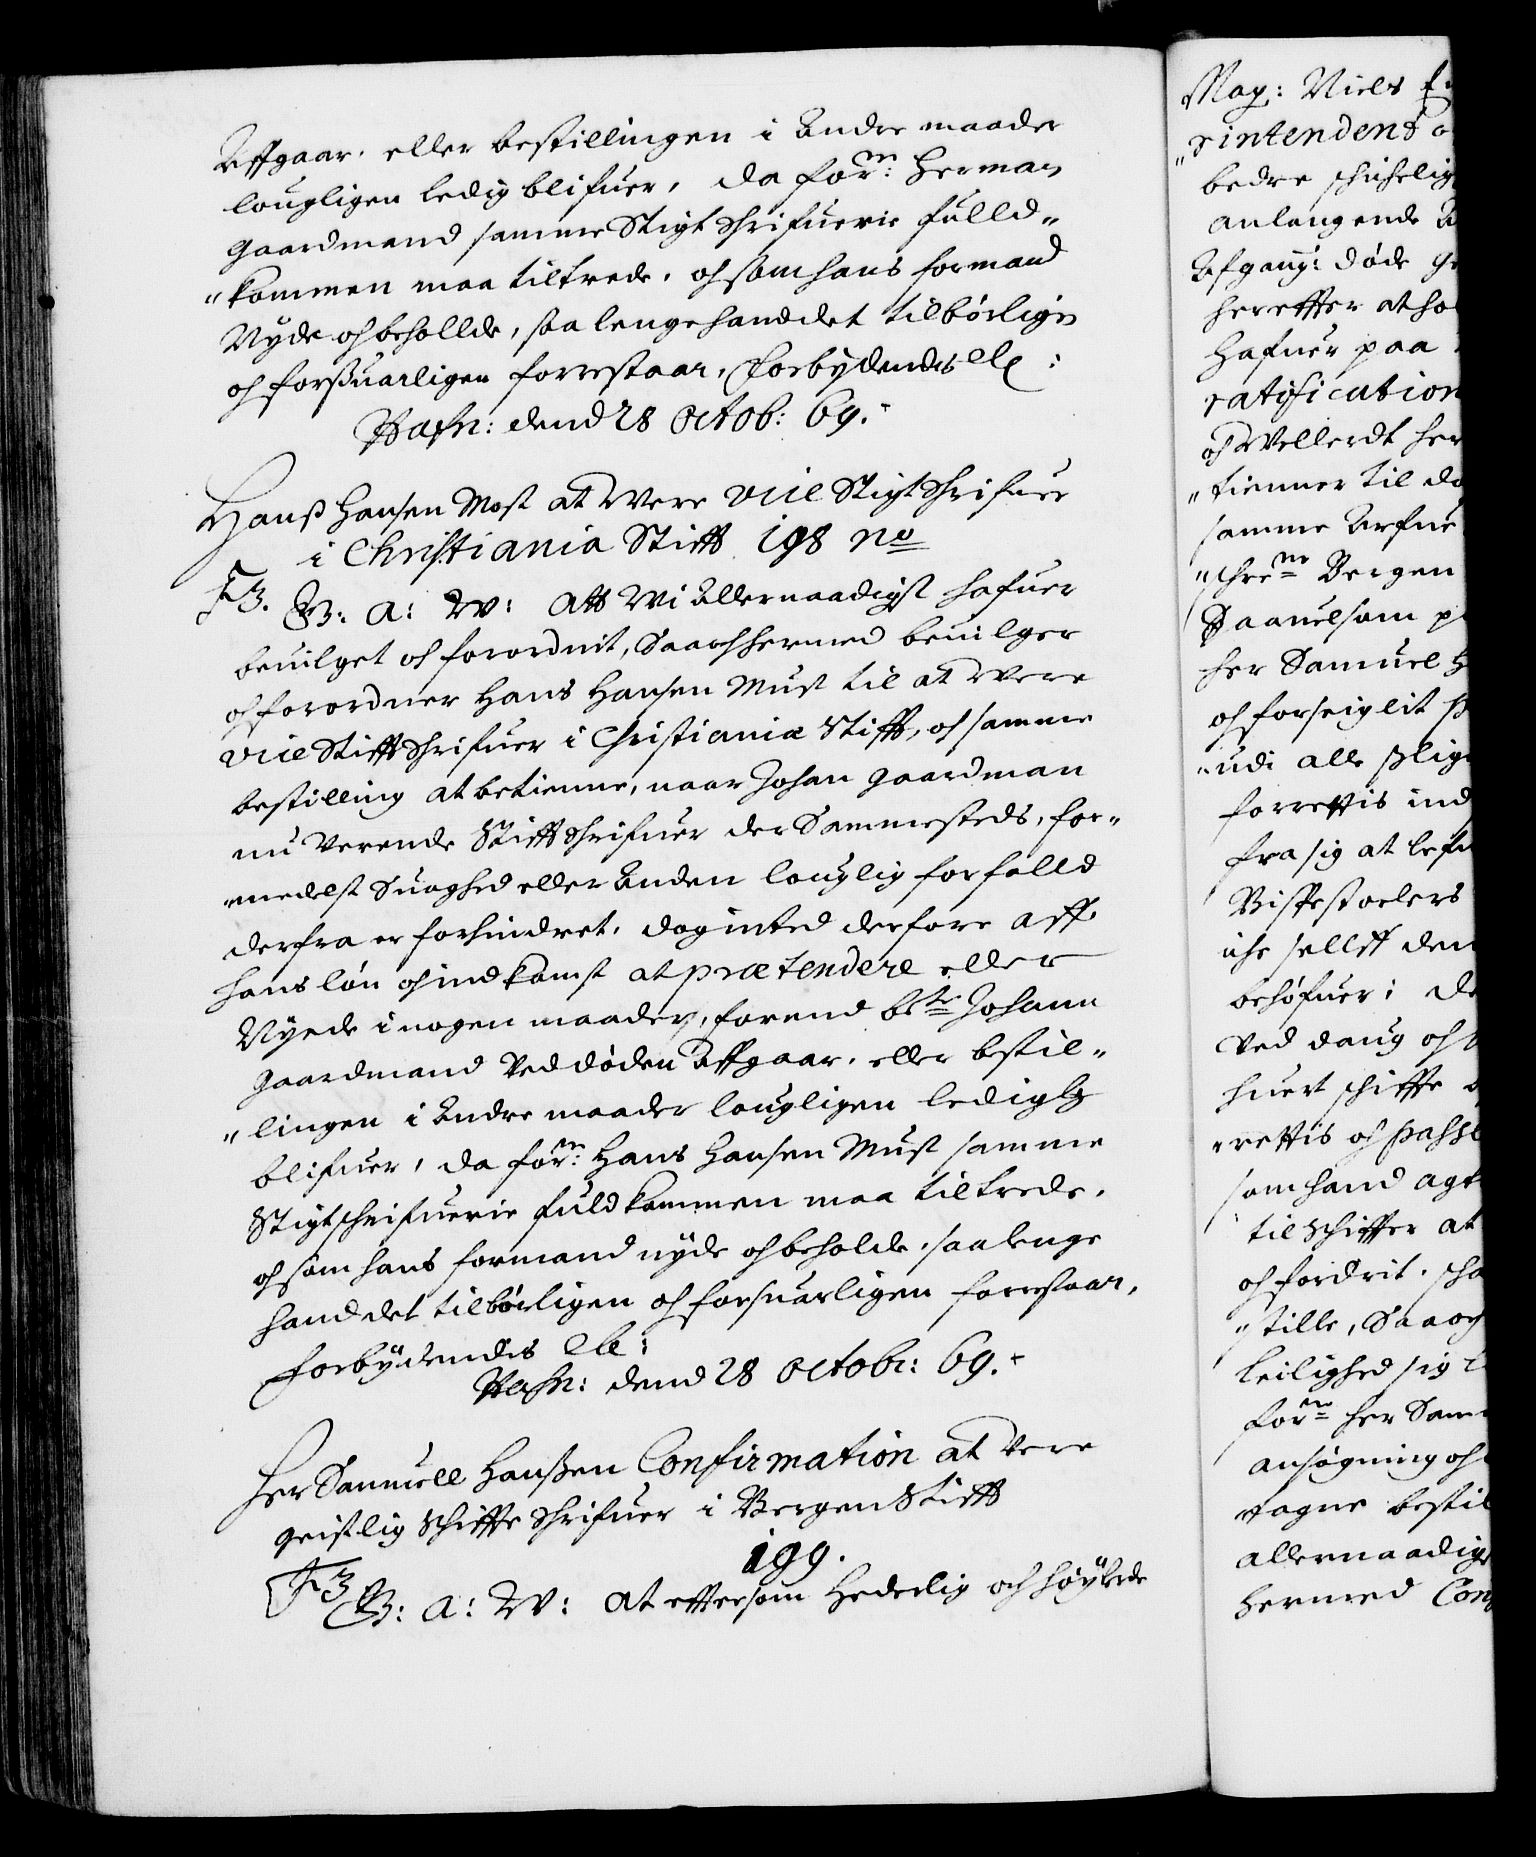 Affgaar. eller bestillingen i Andre maader
lougligen ledig blifuer, da forn: Herman
Gaardmand samme Stigt Skrifuerie fulld„
„kommen maa tiltrede. oc som hans formand
Nyde oc behollde, saa lenge hand det tilbørligen
oc forsuarligen forrestaar, forbydendis etc:
Hafn: dend 28 Octob: 69.
Hanß Hansen Most at Were vice Stigt Skrifuer
i Christiania Stifft 198 no
F3. G: A: W: Att Wi Allernaadigst hafuer
beuilget oc forordnit, Saa och hermed beuilger
oc forordner Hans Hansen Must til at Were
vice Stifft Skrifuer i Christianiæ Stifft, oc samme
bestilling at betienne, naar Johan Gaardman
nu Verende Stifft Skrifuer der Sammesteds, for„
„medelst Suaghed eller Anden louglig forfalld
derfra er forhindret, dog inted derfore aff
hans løn oc indkomst at prætendere eller
Nyede i nogen maader, forend bete Johann
Gaardmand Ved døden Affgaar. eller bestil„
„lingen i Andre maader lougligen ledig
blifuer, da forn: Hans Hansen Must samme
Stigtskrifuerie fuldkommen maa tiltrede.
oc som hans formand nyde oc beholde. saa lenge
hand det tilbørligen oc forsuarligen forrestaar,
forbydendis etc:
Hafn: dend 28 Octobr: 69.
Her Samuell Hanßen Confirmation at Vere
geistlig Skiffte Skrifuer i Bergen Stifft
199.
F3 G: A: W: At effter som Hederlig och Høylerde
Mag: Niels
„rintendent
bedre skichelig
anlangende
Afgang: døde
hereffter at
hafuer paa
ratification
oc Wellerdt her
„tienner til
samme Arfue
„skrefne Bergen
Saauelsom
her Samuel
oc forseiglit
„udi alle slig
forrettis ind
fra sig at
Bispestoelers
iche sellff den
behøfuer: de
Ved daug oc
huert skiffte
„rettis oc passe
som hand agt
til skiffter at
oc fordrit. ska
„stille, Saa og
leilighed sig
forne her Sam
ansøgning oc
tagne bestil
allernaadig
hermed Con